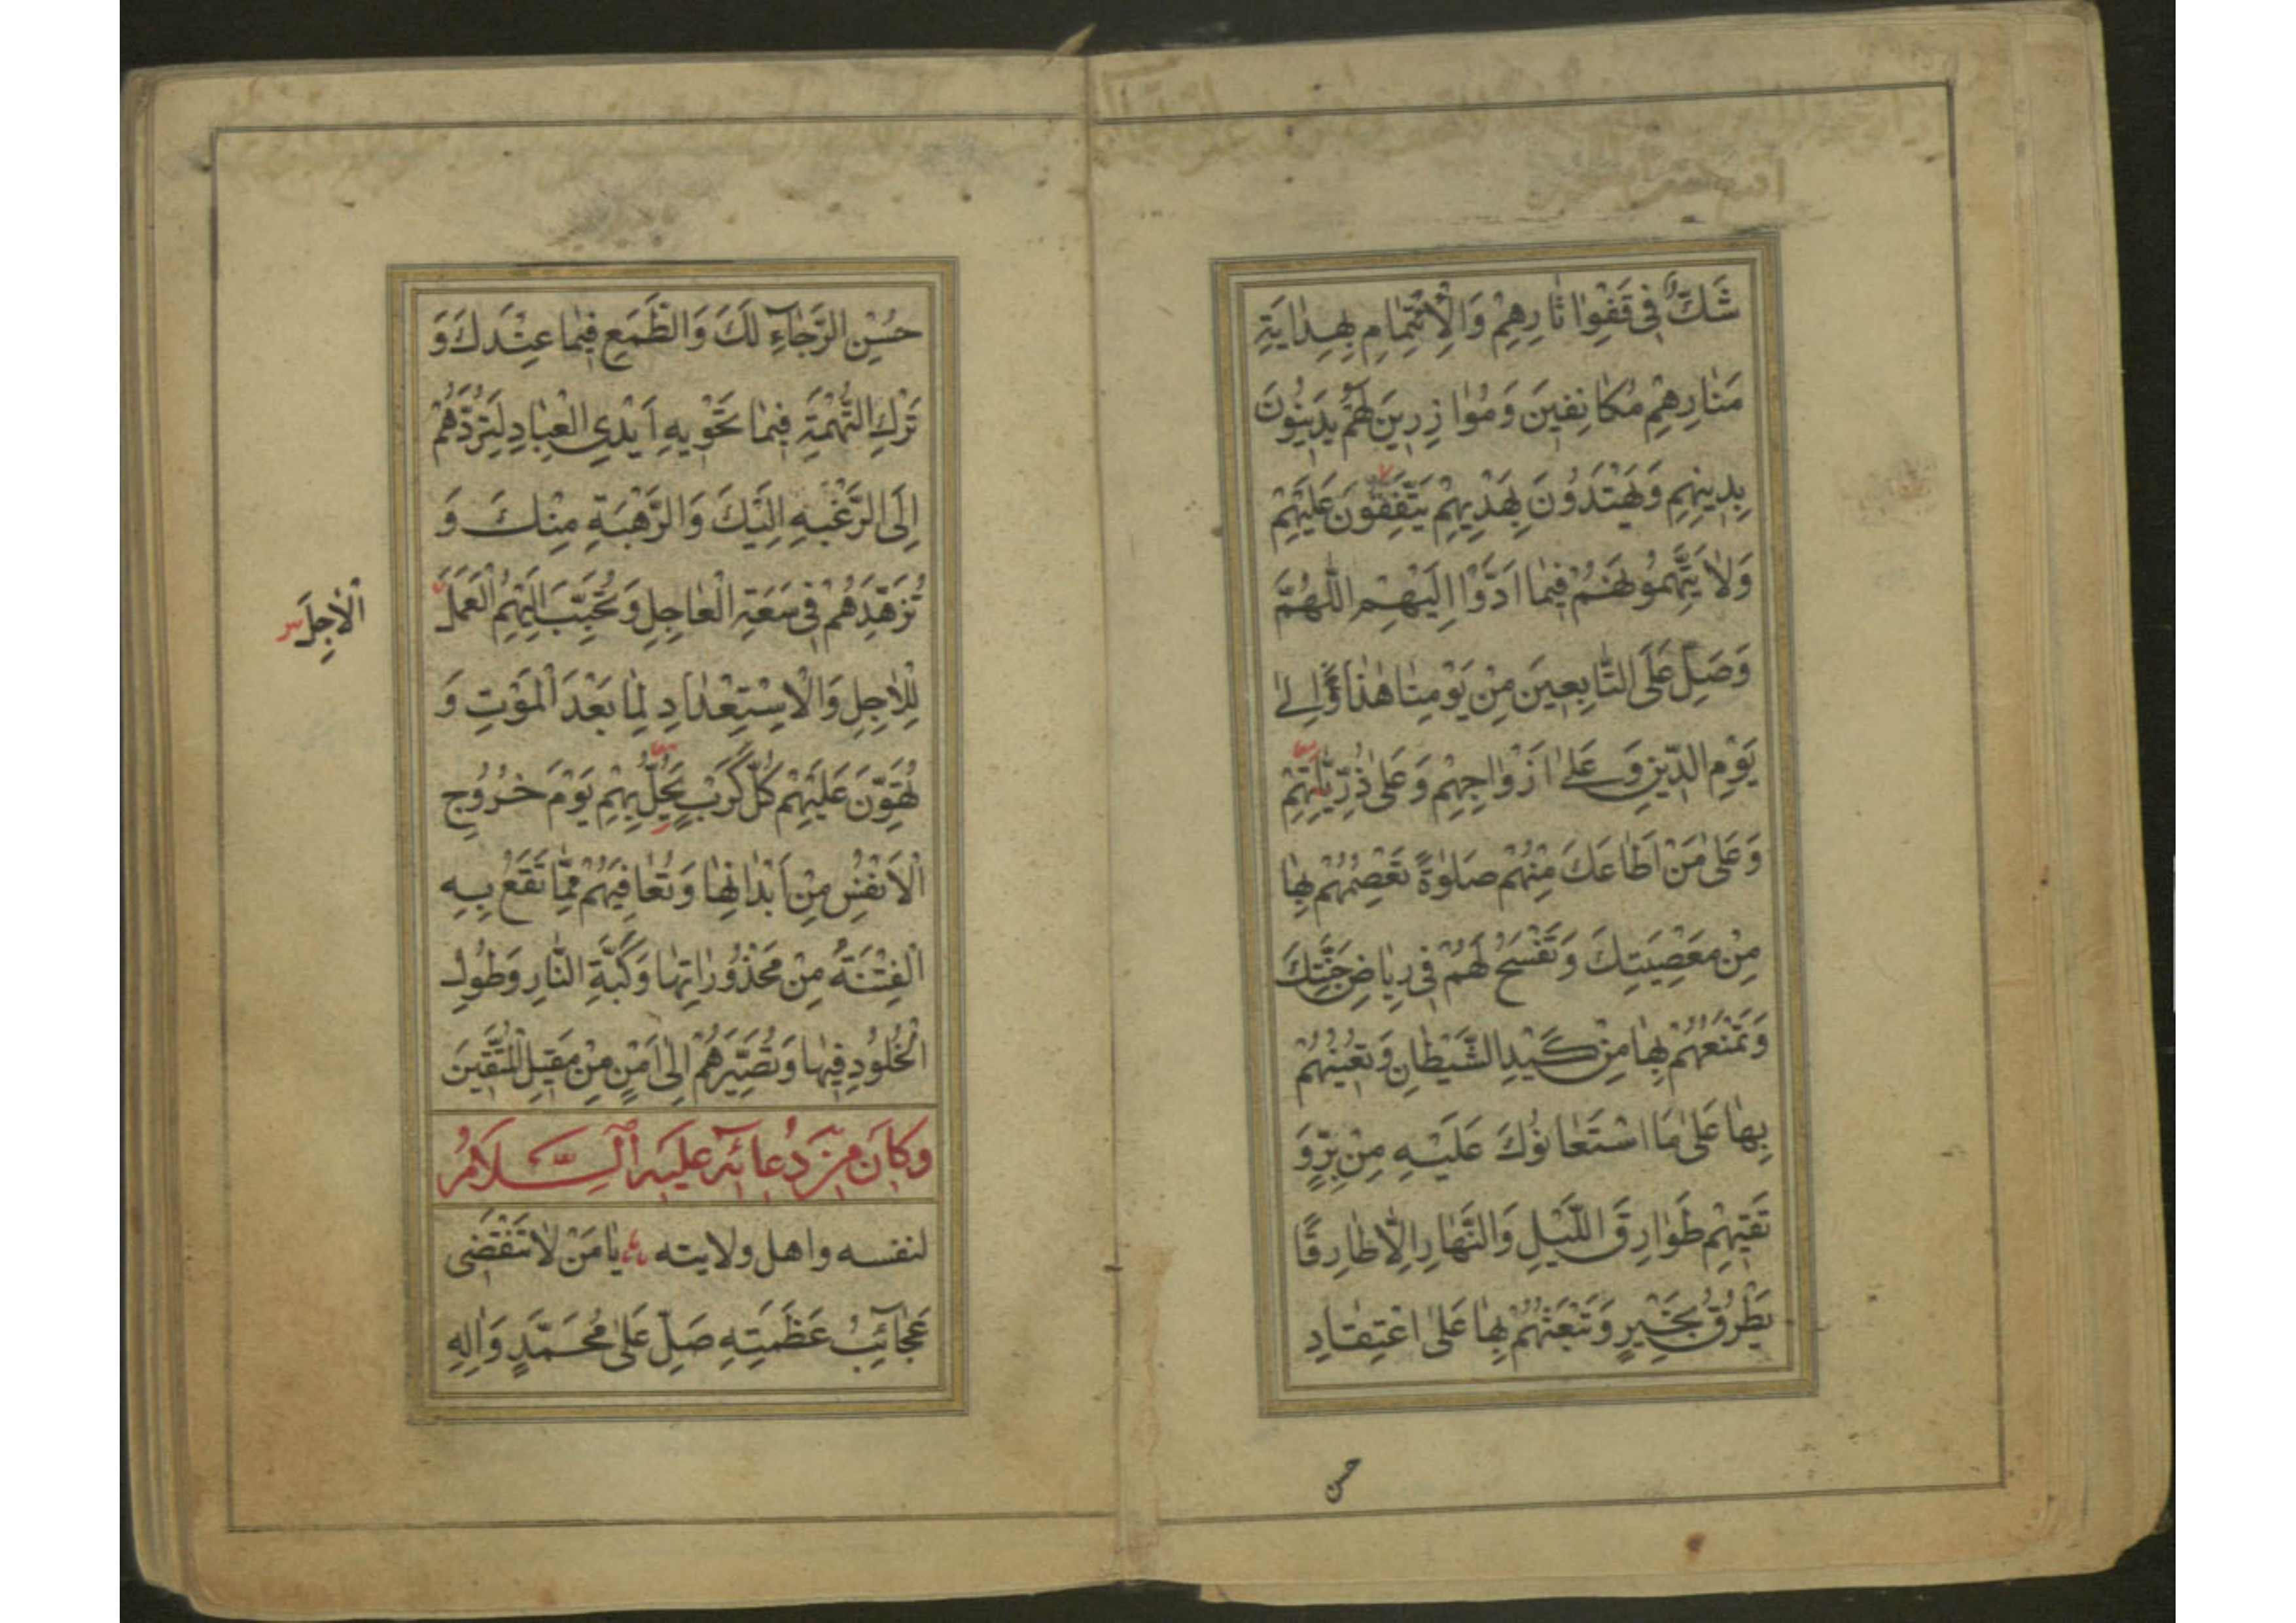 شَكٌّ فِی قَفْوِ اٰثارِهِمْ وَالْاِئْتِمٰامِ بِهِدٰایَةِ
مَنٰارِهِمْ مُكٰانِفینَ وَمُوٰازِرینَ لَهُمْ یَدینُونَ
بِدینِهِمْ وَیَهْتَدُونَ بِهَدْیِهِمْ یَتَّفِقُونَ عَلَیْهِمْ
وَلاٰ یَتَّهِمُونَهُمْ فیمٰا اَدَّوْا اِلَیْهِمْ اَللّٰهُمَّ
وَصَلِّ عَلَی التّٰابِعینَ مِنْ یَوْمِنٰا هٰذٰا وَاِلیٰ
یَوْمِ الدّینِ وَ عَلیٰ اَزْوٰاجِهِمْ وَعَلیٰ ذُرِّیّٰاتِهِمْ
وَعَلیٰ مَنْ اَطٰاعَكَ مِنْهُمْ صَلوٰةً تَعْصِمُهُمْ بِهٰا
مِنْ مَعْصِیَتِكَ وَتَفْسَحُ لَهُمْ فِی رِیٰاضِ جَنَّتِكَ
وَتَمْنَعُهُمْ بِهٰا مِنْ كَیْدِ الشَّیْطٰانِ وَتُعینُهُمْ
بِهٰا عَلیٰ مَا اسْتَعٰانُوكَ عَلَیْهِ مِنْ بِرٍّ وَ
تَقیهِمْ طَوٰارِقَ اللَّیْلِ وَالنَّهٰارِ اِلّٰا طٰارِقًا
یَطْرُقُ بِخَیْرٍ وَتَبْعَثُهُمْ بِهٰا عَلیٰ اعْتِقٰادِ
حسن
حُسْنِ الرَّجٰآءِ لَكَ وَالطَّمَعِ فیمٰا عِنْدَكَ وَ
تَرْكِ التُّهْمَةِ فیمٰا تَحْویهِ اَیْدِی الْعِبٰادِ لِتَرُدَّهُمْ
اِلَی الرَّغْبَةِ اِلَیْكَ وَالرَّهْبَةِ مِنْكَ وَ
تُزَهِّدَهُمْ فِی سَعَةِ الْعٰاجِلِ وَتُحَبِّبَ اِلَیْهِمُ الْعَمَلَ
اَلْاٰجِلَ
لِلْاٰجِلِ وَالْاِسْتِعْدٰادِ لِمٰا بَعْدَ الْمَوْتِ وَ
تُهَوِّنَ عَلَیْهِمْ كُلَّ كَرْبٍ یَحُلُّ بِهِمْ یَوْمَ خُرُوجِ
الْاَنْفُسِ مِنْ اَبْدٰانِهٰا وَتُعٰافِیَهُمْ مِمّٰا تَقَعُ بِهِ
الْفِتْنَةُ مِنْ مَحْذُورٰاتِهٰا وَكَبَّةِ النّٰارِ وَطُولِ
الْخُلُودِ فیهٰا وَتُصَیِّرَهُمْ اِلیٰ اَمْنٍ مِنْ مَقیلِ الْمُتَّقینَ
وَكَانَ مِنْ دُعَائِهِ عَلَیْهِ السَّلَامُ
لنفسه واهل ولایته یٰا مَنْ لاٰ تَنْقَضی
عَجٰآئِبُ عَظَمَتِهِ صَلِّ عَلیٰ مُحَمَّدٍ وَاٰلِهِ